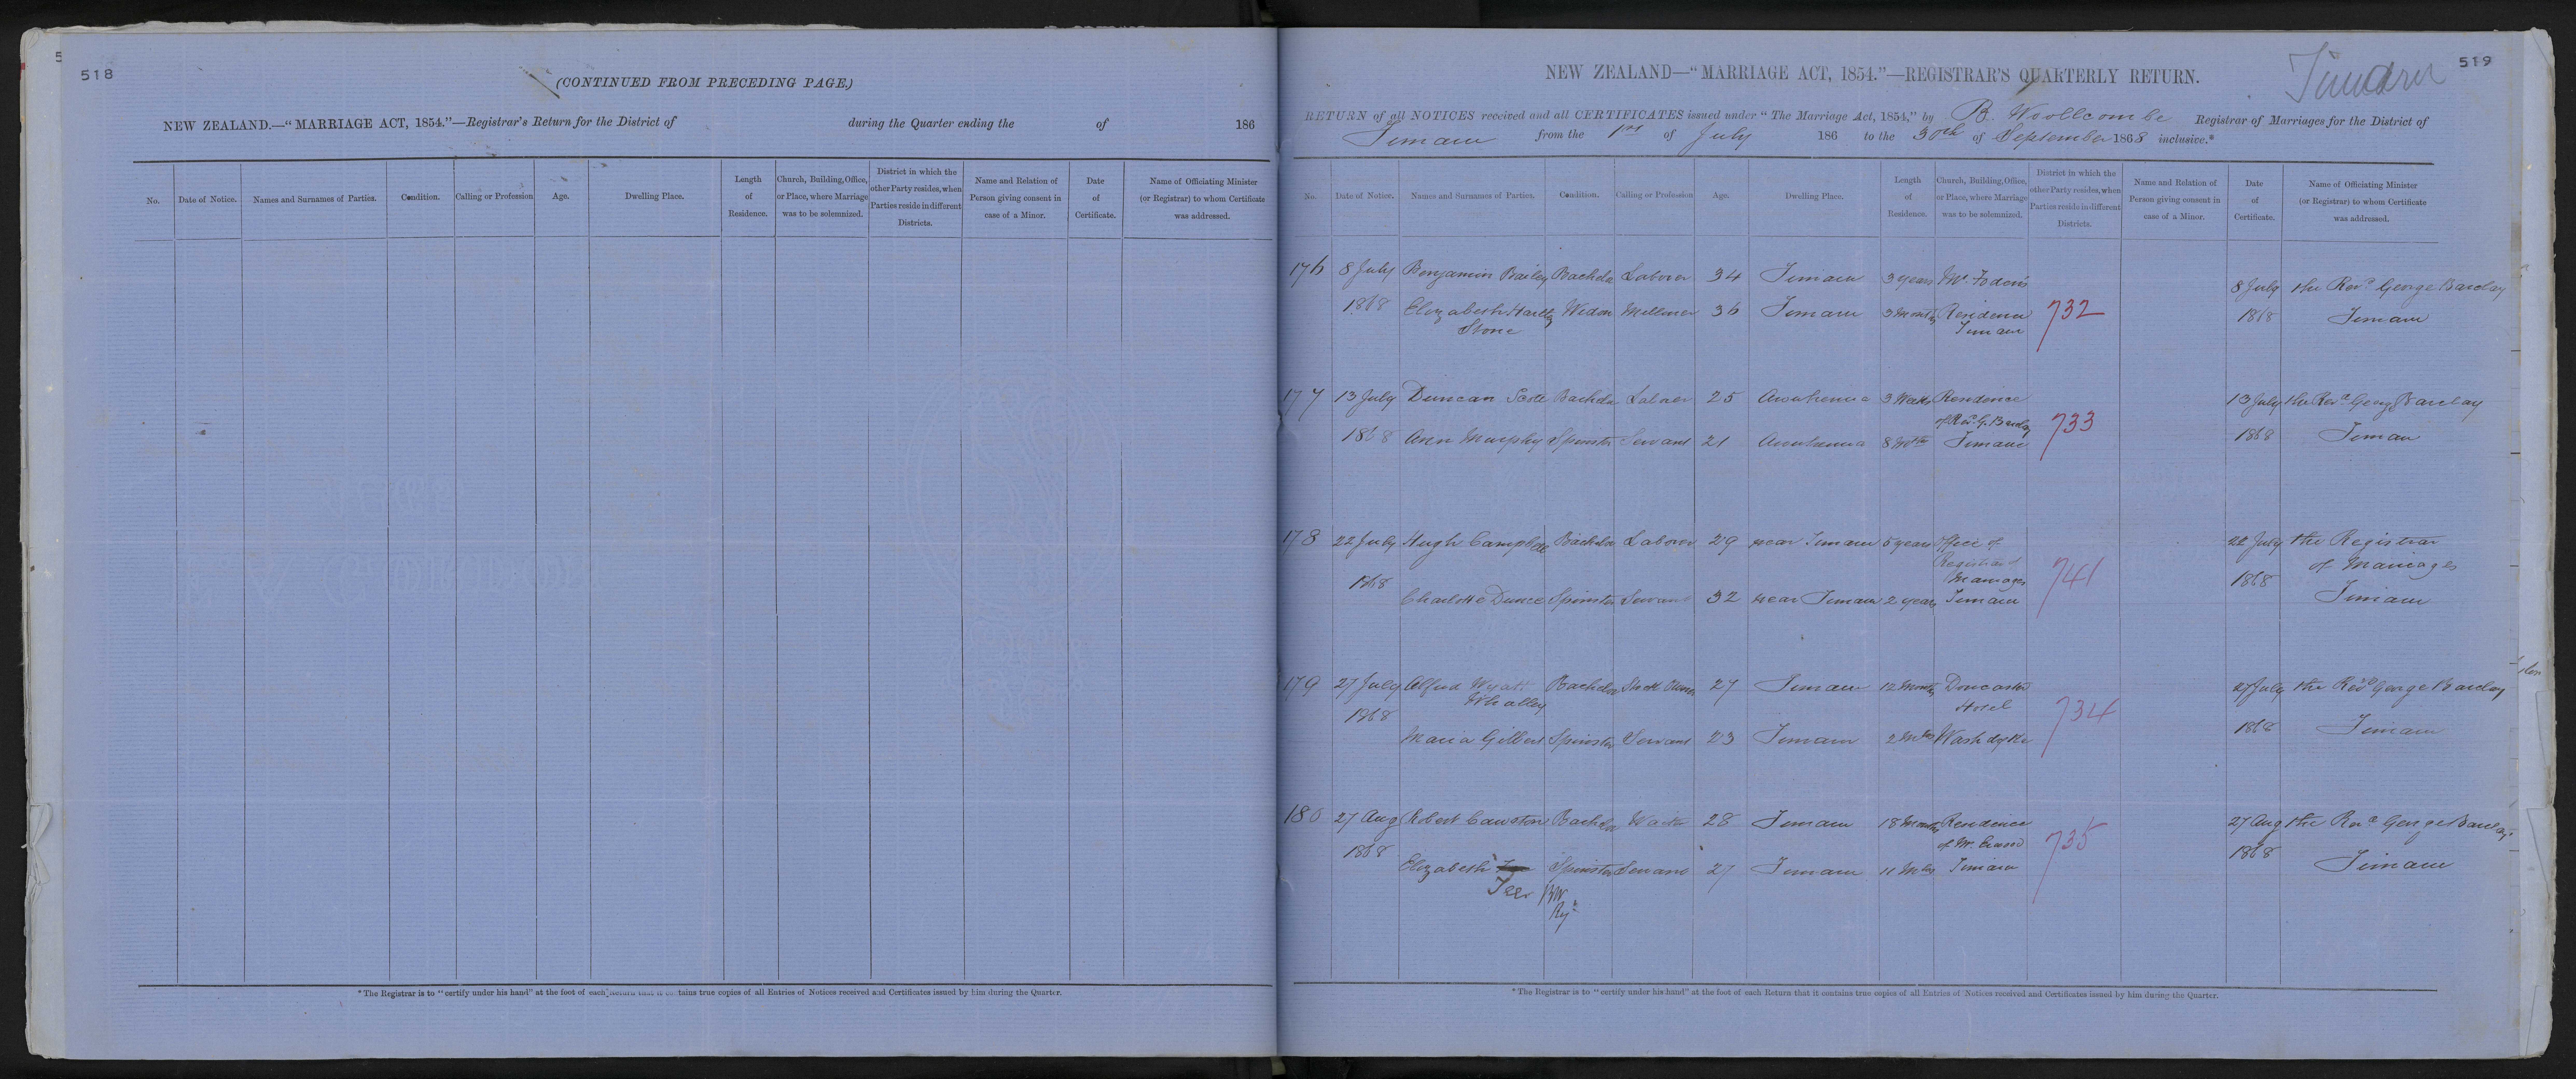 518
(CONTINUED FROM PRECEDING PAGE.)
NEW ZEALAND.—"MARRIAGE ACT, 1854."—Registrar's Return for the District of during the Quarter ending the of 186
No. Date of Notice. Names and Surnames of Parties. Condition. Calling or Profession Age. Dwelling Place. Length of Residence. Church, Building, Office, or Place, where Marriage was to be solemnized. District in which the other Party resides, when Parties reside in different Districts. Name and Relation of Person giving consent in case of a Minor. Date of Certificate. Name of Officiating Minister (or Registrar) to whom Certificate was addressed.
* The Registrar is to "certify under his hand" at the foot of each Return that it contains true copies of all Entries of Notices received and Certificates issued by him during the Quarter.
519
Timaru
NEW ZEALAND—"MARRIAGE ACT, 1854."—REGISTRAR'S QUARTERLY RETURN.
RETURN of all NOTICES received and all CERTIFICATES issued under "The Marriage Act, 1854," by B. Woollcombe Registrar of Marriages for the District of
Timaru from the 1st of July 186 to the 30th of September 1868 inclusive.*
No. Date of Notice. Names and Surnames of Parties. Condition. Calling or Profession Age. Dwelling Place. Length of Residence. Church, Building, Office, or Place, where Marriage was to be solemnized. District in which the other Party resides, when Parties reside in different Districts. Name and Relation of Person giving consent in case of a Minor. Date of Certificate. Name of Officiating Minister (or Registrar) to whom Certificate was addressed.
176 8 July Benjamin Bailey Bachelor Laborer 34 Timaru 3 years Mr. 8 July the Revd George Barclay
1868 Elizabeth Hartley Widow Milliner 36 Timaru 3 months Residence 732 1868 Timaru
Stone Timaru
177 13 July Duncan Scott Bachelor Laborer 25 3 Weeks Residence 13 July the Revd George Barclay
of Revd G. Barclay 733
1868 Ann Murphy Spinster Servant 21 8 Mths Timaru 1868 Timaru
178 22 July Hugh Campbell Bachelor Laborer 29 near Timaru 5 years Office of 22 July the Registrar
Registrar of of Marriages
1868 Marriages 741 1868
Charlotte Spinster Servant 32 near Timaru 2 years Timaru Timaru
179 27 July Alfred Wyatt Bachelor 27 Timaru 12 months Doncaster 27 July the Revd George Barclay
Whalley Hotel 734
1868 Maria Gilbert Spinster Servant 23 Timaru 2 Mths Washdyke 1868 Timaru
180 27 Aug Robert Cawston Bachelor 28 Timaru 18 Months Residence 27 Aug the Revd George Barclay
1868 of Mr. 735 1868
Elizabeth Spinster Servant 27 Timaru 11 Mths Timaru Timaru
BW
Regr
* The Registrar is to "certify under his hand" at the foot of each Return that it contains true copies of all Entries of Notices received and Certificates issued by him during the Quarter.